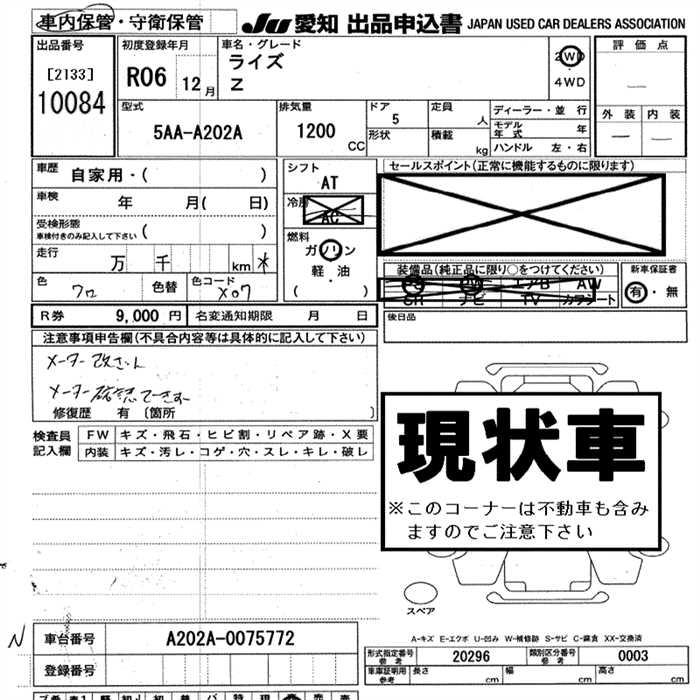 車内保管・守衛保管
JU 愛知 出品申込書 JAPAN USED CAR DEALERS ASSOCIATION
出品番号
[2133]
10084
初度登録年月
R06 12月
車名・グレード
ライズ
Z
2WD
4WD
評価点
―
外装 内装
― ―
型式
5AA-A202A
排気量
1200
CC
ドア
5
形状
定員
人
積載
kg
ディーラー・並行
モデル年式 年
ハンドル 左・右
車歴
自家用・( )
車検
年 月( 日)
受検形態
車検付きのみ記入して下さい ( )
走行
万 千 km *
色
クロ
色替
色コード
X07
シフト
AT
冷房
AC
燃料
ガソリン
軽・油
( )
セールスポイント(正常に機能するものに限ります)
装備品(純正品に限り○をつけてください)
PS PW エアB AW
SR ナビ TV カワシート
新車保証書
有・無
R券 9,000 円 名変通知期限 月 日
後日品
注意事項申告欄(不具合内容等は具体的に記入して下さい)
メーター改ざん
メーター確認できず
修復歴 有 〔箇所 〕
検査員記入欄
FW キズ・飛石・ヒビ割・リペア跡・X要
内装 キズ・汚レ・コゲ・穴・スレ・キレ・破レ
現状車
※このコーナーは不動車も含み
ますのでご注意下さい
スペア
A-キズ E-エクボ U-凹み W-補修跡 S-サビ C-腐食 XX-交換済
N
車台番号 A202A-0075772
登録番号
形式指定番号 参考 20296 類別区分番号 参考 0003
車庫証明用 参考 長さ cm 幅 cm 高さ cm